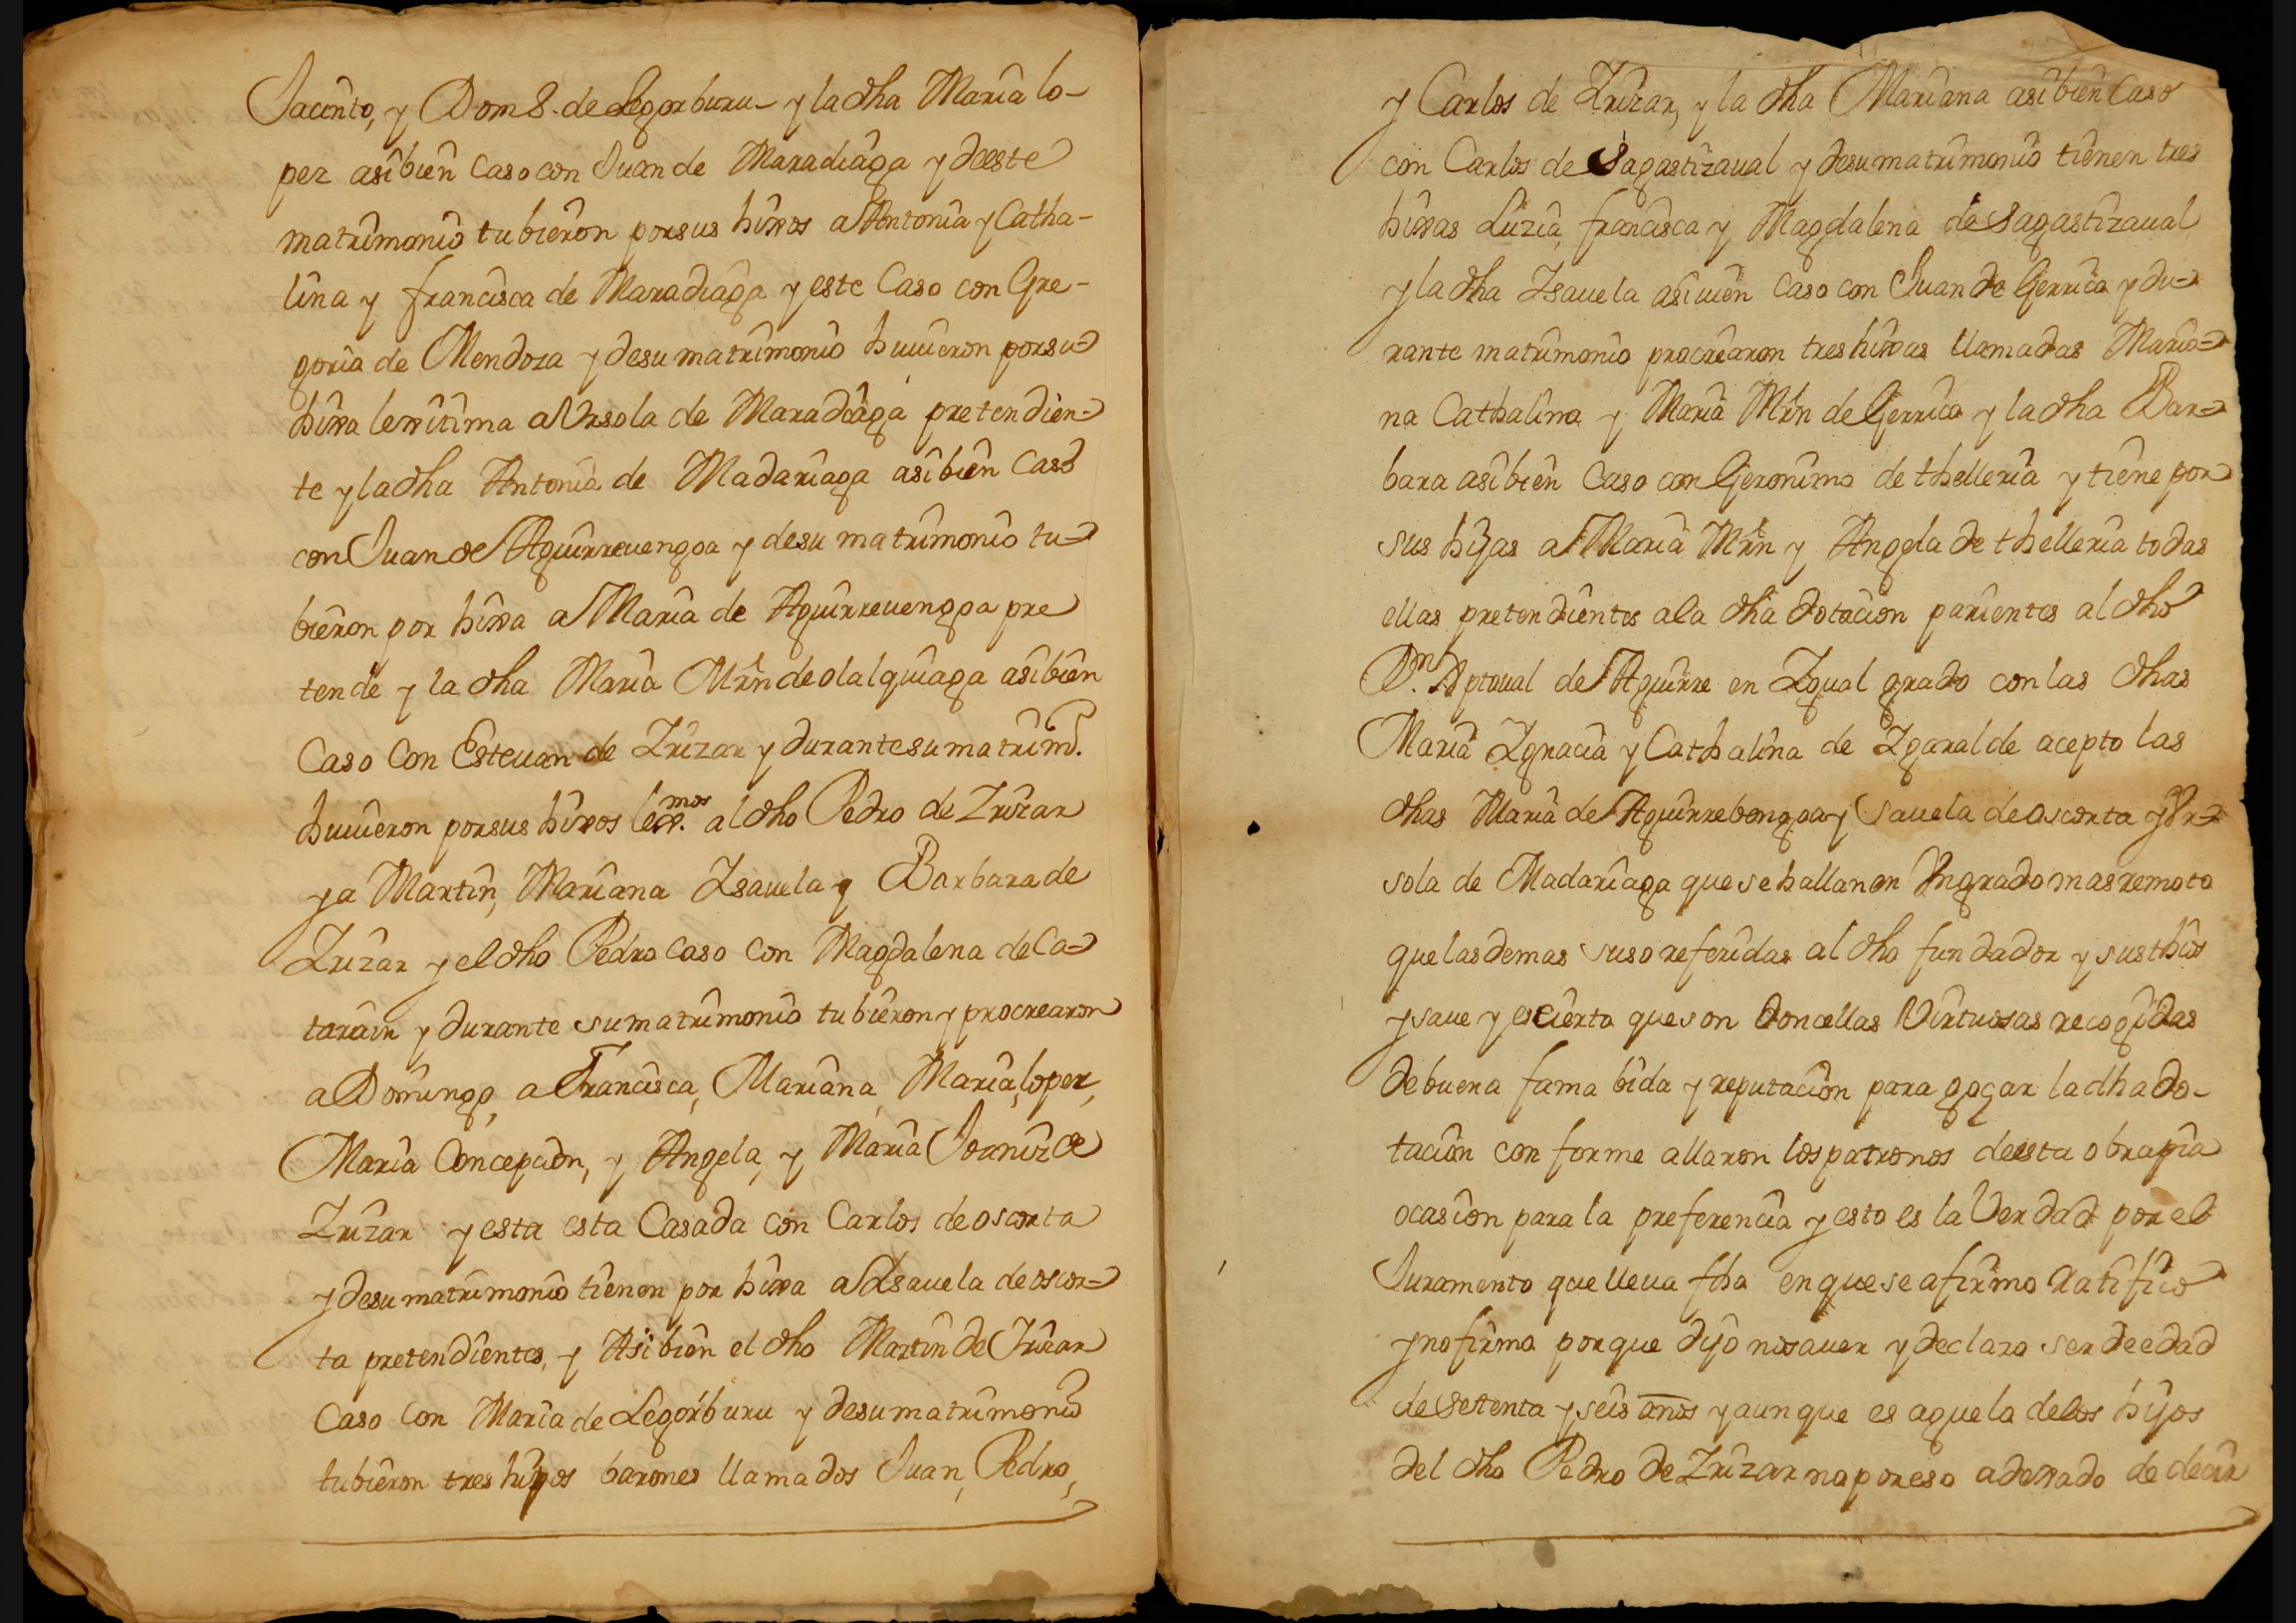 Jacinto, y Dom.º de Legorburu y la dha Maria lo-
pez asibien caso con Juan de Maradiaga y de este
matrimonio tubieron por sus hixos a Antonia y Catha-
lina y francisca de Maradiaga y este Caso con Gre-
goria de Mendoza y de su matrimonio huuieron por su
hixa lexitima a Vrsola de Maradiaga pretendien-
te y la dha Antonia de Madariaga asibien Caso
con Juan de Aguirreuengoa y de su matrimonio tu-
bieron por hixa a Maria de Aguirreuengoa pre
tende y la dha Maria Mrn de olalquiaga asibien
Caso Con Esteuan de Yrizar y durante su matrimº.
huuieron por sus hixos lex.mos al dho Pedro de Yrizar
y a Martin, Mariana Ysauela y Barbara de
Yrizar y el dho Pedro caso con Magdalena de Ca-
tarain y durante su matrimonio tubieron y procrearon
a Domingo, a Francisca, Mariana, Maria lopez,
Maria Concepcion, y Angela, y Maria Joaniz de
Yrizar y esta esta Casada con Carlos de oscorta
y de su matrimonio tienen por hixa a Ysauela de oscor-
ta pretendientes, y Asibien el dho Martin de Yrizar
Caso con Maria de Legorburu y de su matrimonio
tubieron tres hijos barones llamados Juan, Pedro,
y Carlos de Yrizar, y la dha Mariana asibien Caso
con Carlos de Sagastizaual y de su matrimonio tienen tres
hixas Luzia, francisca y Magdalena de Sagastizaual
y la dha Ysauela asiuien caso con Juan de Gerrica y du-
rante matrimonio procrearon tres hixas llamadas Maria-
na Cathalina y Maria Mrn de Gerrica y la dha Bar-
bara asibien Caso con Geronimo de thelleria y tiene por
sus hijas a Maria Mrn y Angela de thelleria todas
ellas pretendientes a la dha dotacion parientes al dho
Dn. Xptoual de Aguirre en Ygual grado con las dhas
Maria Ygnacia y Cathalina de Ygaralde acepto las
dhas Maria de Aguirrebengoa y Ysauela de oscorta y Vr-
sola de Madariaga que se hallan en Vn grado mas remoto
que las demas suso referidas al dho fundador y sus thios
y saue y es cierto que son doncellas Virtuosas recogidas
de buena fama bida y reputacion para goçar la dha do-
tacion conforme allaron los patronos de esta obra pia
ocasion para la preferencia y esto es la Verdad por el
Juramento que lleua fho en que se afirmo Ratifico
y no firmo porque dijo no sauer y declaro ser de edad
de setenta y seis años y aunque es aguela de los hijos
del dho Pedro de Yrizar no por eso a dexado de decir